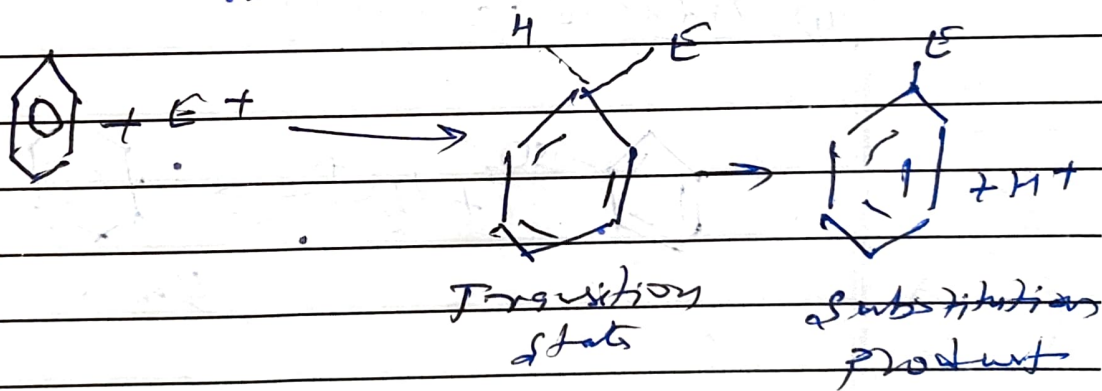 H E
E
+ E +
+ H +
Transition
State
Substitution
Product